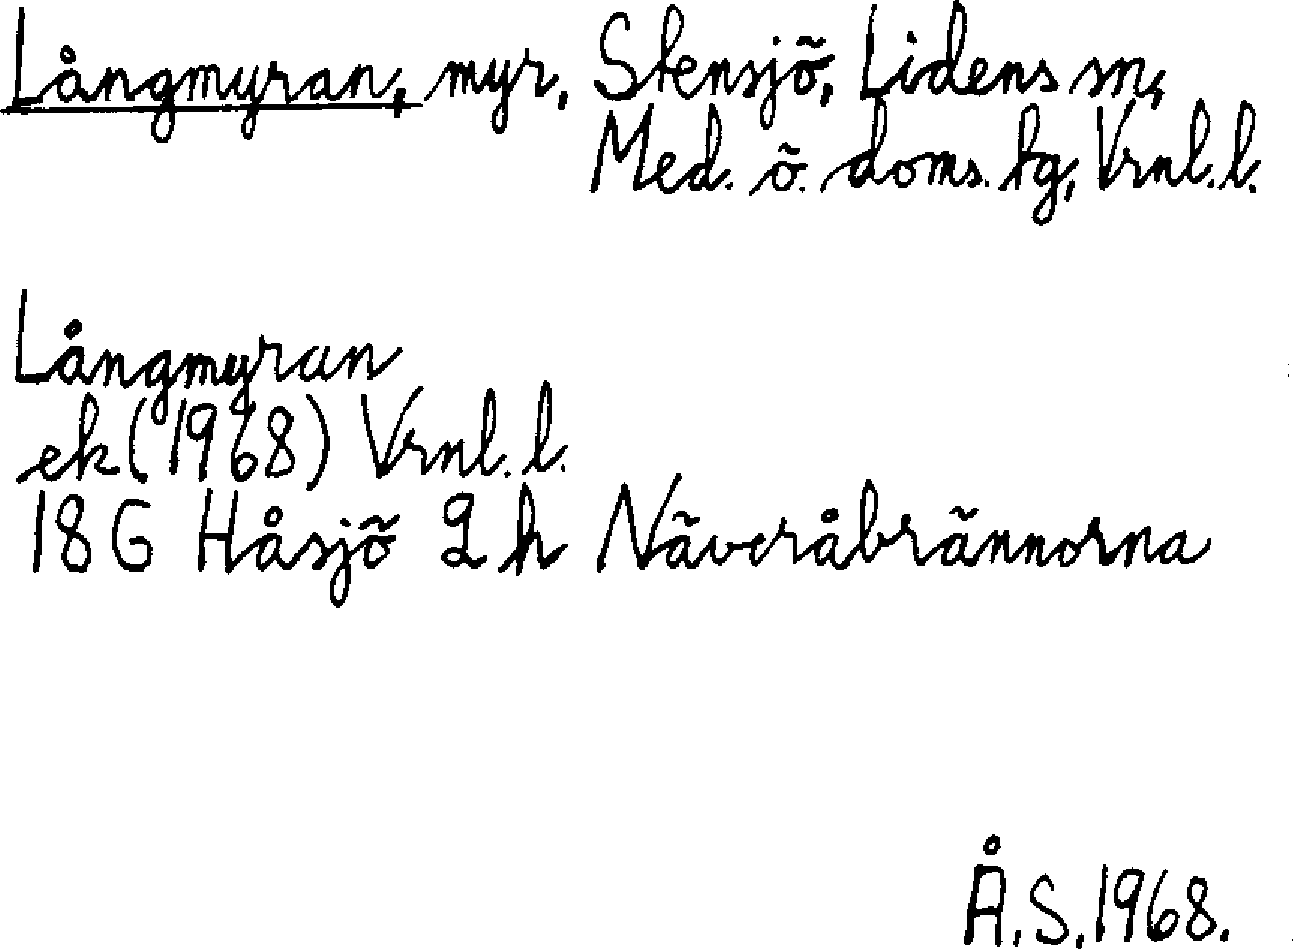 Långmyran, myr, Stensjö, Lidens sn,
Med. ö. doms. tg, Vrnl. l.
Långmyran
ek (1968) Vrnl. l.
18 G Håsjö 2 h Näveråbrännorna
Å. S. 1968.